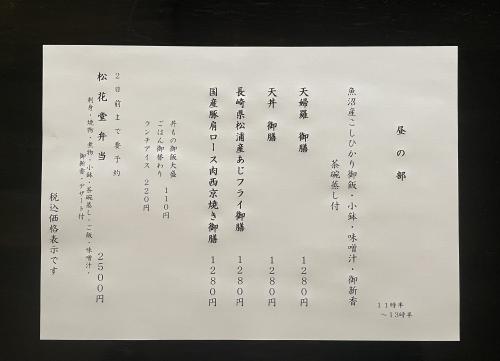 昼の部
11時半
～13時半
魚沼産こしひかり御飯・小鉢・味噌汁・御新香
茶碗蒸し付
天婦羅 御膳 1280円
天丼 御膳 1280円
長崎県松浦産あじフライ御膳 1280円
国産豚肩ロース肉西京焼き御膳 1280円
丼もの御飯大盛 110円
ごはん御替わり
ランチアイス 220円
2日前まで要予約
松花堂弁当 2500円
刺身・焼物・煮物・小鉢・茶碗蒸し・ご飯・味噌汁・
御新香・デザート付
税込価格表示です